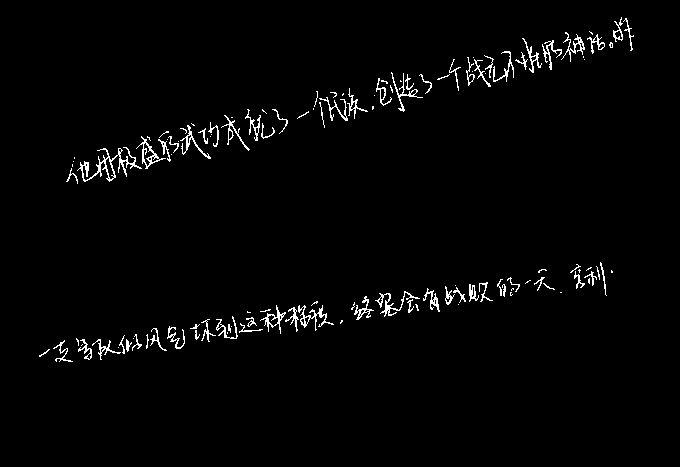 他用极盛的武功成就了一个民族，创造了一个战无不胜的神话。时
一支军队的风气坏到这种程度，终究会有战败的一天．亨利．